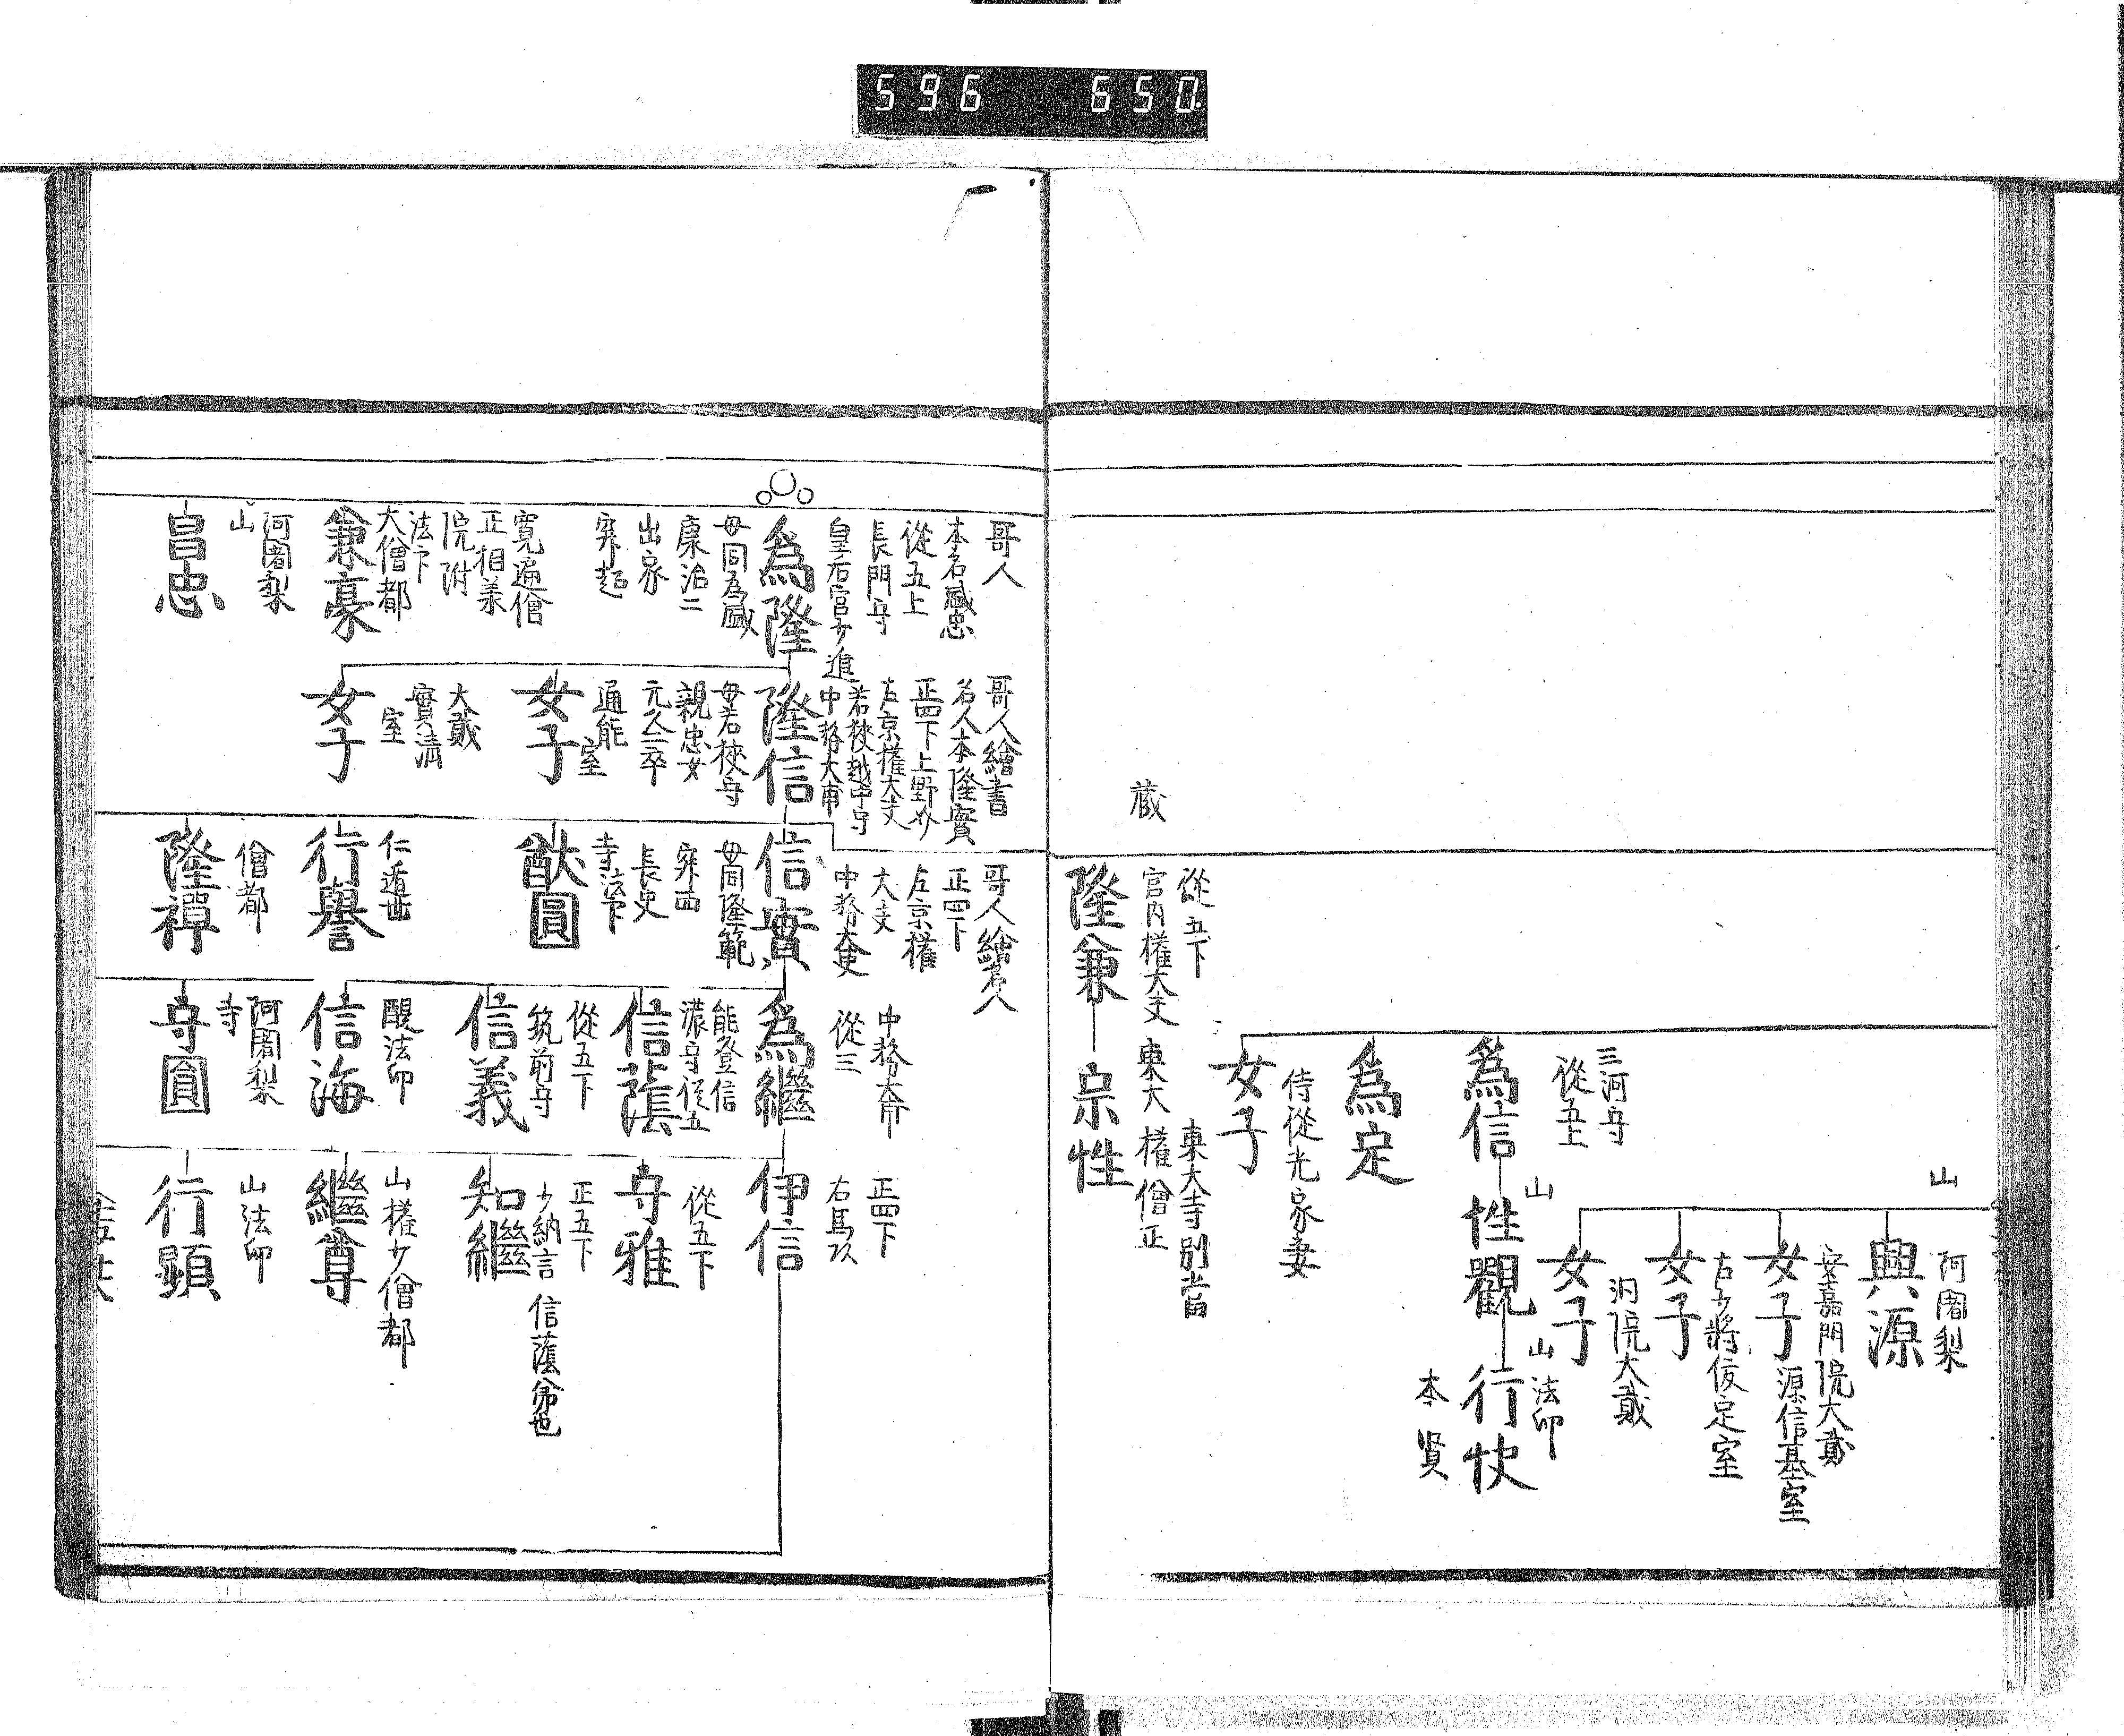 596 650
山
阿闍梨
興源
安嘉門院大貳
女子
源信基室
右少將信定室
女子
洞院大貳
女子
三河守
從五上
爲信
山
性觀
山法印
行快
本賢
爲定
侍從光家妻
女子
從五下
宮内權大夫
隆兼
東大寺別當
東大 權僧正
宗性
蔵
哥人
本名盛忠
從五上
長門守
皇后宮少進
爲隆
母同爲盛
康治二
出家
寂超
寛遍僧
正相美
院附
法下
大僧都
兼豪
阿闍梨
山
昌忠
哥人繪書
名人本隆實
正四下上野介
右京權大夫
若狹越中守
中務大甫
隆信
母若狹守
親忠女
元久二卒
通能
室
女子
大貳
實清
室
女子
哥人繪名人
正四下
左京權
大夫
信實
母同隆範
寂西
長史
寺法下
猷圓
仁遁世
行譽
僧都
隆禪
中務大甫
從三
爲繼
能登信
濃守從五
信蔭
從五下
筑前守
信義
醍法印
信海
阿闍梨
寺
守圓
正四下
右馬
伊信
從五下
寺雅
正五下
少納言
信蔭弟也
知繼
山權少僧都
繼尊
山法印
行顕